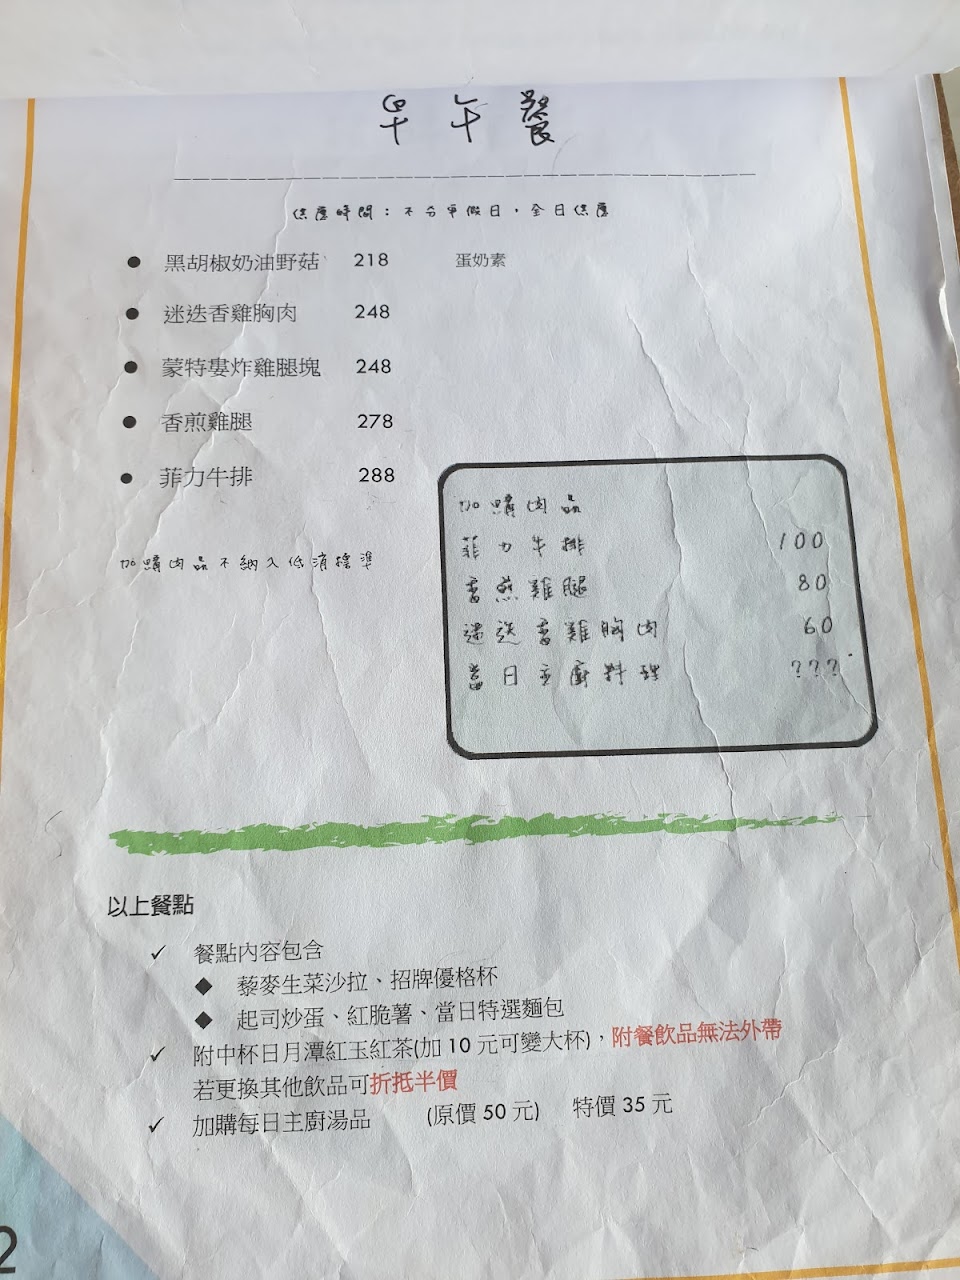 早午餐
供應時間：不分平假日，全日供應
● 黑胡椒奶油野菇 218 蛋奶素
● 迷迭香雞胸肉 248
● 蒙特婁炸雞腿塊 248
● 香煎雞腿 278
● 菲力牛排 288
加購肉品不納入低消標準
加購肉品
菲力牛排 100
香煎雞腿 80
迷迭香雞胸肉 60
當日主廚料理 ???
以上餐點
✓ 餐點內容包含
◆ 藜麥生菜沙拉、招牌優格杯
◆ 起司炒蛋、紅脆薯、當日特選麵包
✓ 附中杯日月潭紅玉紅茶(加 10 元可變大杯)，附餐飲品無法外帶
若更換其他飲品可折抵半價
✓ 加購每日主廚湯品 (原價 50 元) 特價 35 元
2